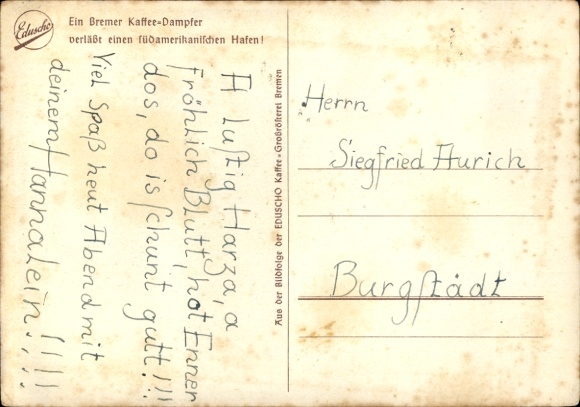 Eduscho
Ein Bremer Kaffee=Dampfer
verläßt einen südamerikanischen Hafen!
A lustig Harza, a
fröhlich Blutt, hot Enner
dos, do is schunt gutt!!!
Viel Spaß heut Abend mit
deinem Hannalein!!!!!
Aus der Bildfolge der EDUSCHO Kaffee=Großrösterei Bremen
Herrn
Siegfried Aurich
Burgstädt